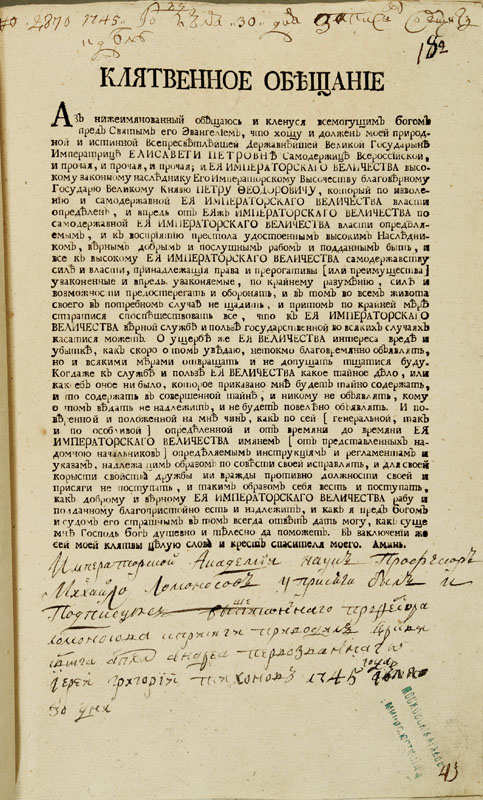 № 2870 1745 июля 30 дня
182
КЛЯТВЕННОЕ ОБѢЩАНІЕ
Азъ нижеимянованный обѣщаюсь и кленуся всемогущимъ богомъ
предъ Святымъ его Эвангеліемъ, что хощу и долженъ моей природ-
ной и истинной Всепресвѣтлѣйшей Державнѣйшей Великой Государынѣ
Императрицѣ ЕЛИСАВЕТИ ПЕТРОВНѢ Самодержицѣ Всероссійской,
и прочая, и прочая, и прочая; и ЕЯ ИМПЕРАТОРСКАГО ВЕЛИЧЕСТВА высо-
кому законному наслѣднику Его Императорскому Высочеству благовѣрному
Государю Великому Князю ПЕТРУ ѲЕОДОРОВИЧУ, который по изволе-
нію и самодержавной ЕЯ ИМПЕРАТОРСКАГО ВЕЛИЧЕСТВА власти
опредѣленъ, и впредь отъ ЕЯжъ ИМПЕРАТОРСКАГО ВЕЛИЧЕСТВА по
самодержавной ЕЯ ИМПЕРАТОРСКАГО ВЕЛИЧЕСТВА власти опредѣля-
емымъ, и къ воспріятію престола удостоеннымъ высокимъ Наслѣдни-
комъ, вѣрнымъ добрымъ и послушнымъ рабомъ и подданнымъ быть, и
все къ высокому ЕЯ ИМПЕРАТОРСКАГО ВЕЛИЧЕСТВА самодержавству
силѣ и власти, принадлежащія права и прерогативы [или преимущества]
узаконенные и впредь узаконяемые, по крайнему разумѣнію, силѣ и
возможности предостерегать и оборонять, и въ томъ во всемъ живота
своего въ потребномъ случаѣ не щадить, и притомъ по крайней мѣрѣ
старатися споспѣшествовать все, что къ ЕЯ ИМПЕРАТОРСКАГО
ВЕЛИЧЕСТВА вѣрной службѣ и пользѣ государственной во всякихъ случаяхъ
касатися можетъ. О ущербѣ же ЕЯ ВЕЛИЧЕСТВА интереса вредѣ и
убыткѣ, какъ скоро о томъ увѣдаю, нетокмо благовременно объявлять,
но и всякими мѣрами отвращать и не допущать тщатися буду.
Когдаже къ службѣ и пользѣ ЕЯ ВЕЛИЧЕСТВА какое тайное дѣло, или
какое бъ оное ни было, которое приказано мнѣ будетъ тайно содержать,
и то содержать въ совершенной тайнѣ, и никому не объявлять, кому
о томъ вѣдать не надлежитъ, и не будетъ повелѣно объявлять. И по-
вѣренной и положенной на мнѣ чинъ, какъ по сей [генеральной, такъ
и по особливой] опредѣленной и отъ времяни до времяни ЕЯ
ИМПЕРАТОРСКАГО ВЕЛИЧЕСТВА имянемъ [отъ представленныхъ на-
домною начальниковъ] опредѣляемымъ инструкціямъ и регламентамъ и
указамъ, надлежащимъ образомъ по совѣсти своей исправлять, и для своей
корысти свойства дружбы ни вражды противно должности своей и
присяги не поступать, и такимъ образомъ себя весть и поступать,
какъ доброму и вѣрному ЕЯ ИМПЕРАТОРСКАГО ВЕЛИЧЕСТВА рабу и
подданному благопристойно есть и надлежитъ, и какъ я предъ богомъ
и судомъ его страшнымъ въ томъ всегда отвѣтъ дать могу, какъ суще
мнѣ Господь богъ душевно и тѣлесно да поможетъ. Въ заключеніи же
сей моей клятвы цѣлую слова и крестъ спасителя моего. Аминь.
Императорской Академіи наукъ Профессоръ
Михайло Ломоносовъ у присяги былъ и
Подписуюсь профессора
ломоносова къ присяге приводилъ церкви
апостола андрея первозваннаго
іерей григорій тихоновъ 1745 года июля
30 дня
43